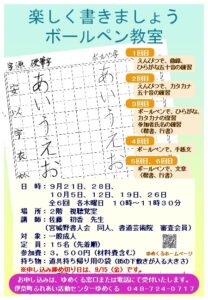 楽しく書きましょう
ボールペン教室
あいうえお
1回目
えんぴつで、曲線、
ひらがな五十音の練習
2回目
えんぴつで、カタカナ
五十音の練習
3回目
ボールペンで、ひらがな、
カタカナの練習
参加者氏名の練習
(楷書、行書)
4回目
ボールペンで、手紙文
5回目
ボールペンで、文章
(楷書、行書)
日 時:9月21日、28日、
10月5日、12日、19日、26日
全6回 各木曜日 10時~11時30分
場 所:2階 視聴覚室
講 師:佐藤 初香 先生
(宮城野書人会 同人、書道芸術院 審査会員)
対 象:一般成人
定 員:15名(先着順)
費 用:3,500円(材料費含む)
持ち物:道具持ち帰り用の袋
※申し込み締め切り日は、9/15(金)です。
お申し込みは、ゆめくる窓口または電話にて受付いたします。
伊奈町ふれあい活動センターゆめくる 048-724-0717